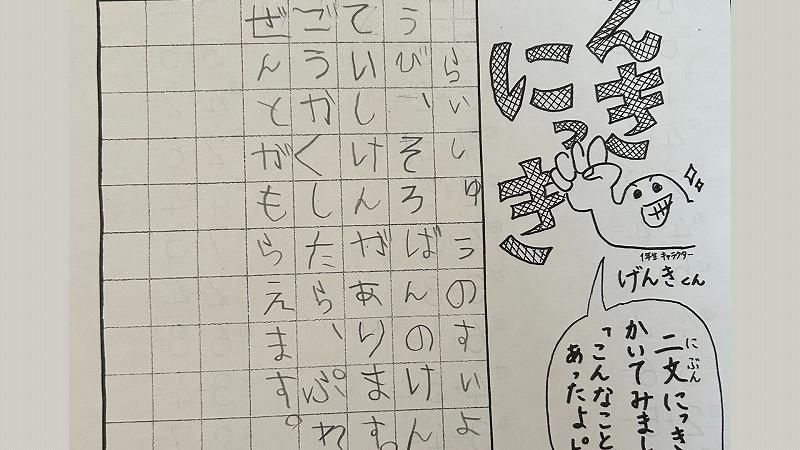 んき
にっき
1年生 キャラクター
げんきくん
にぶん
二文にっき
かいてみまし
「こんなこと
あったよ
らいしゅうのすいよ
うび、そろばんのけん
ていしけんがあります。
ごうかくしたら、ぷれ
ぜんとがもらえます。